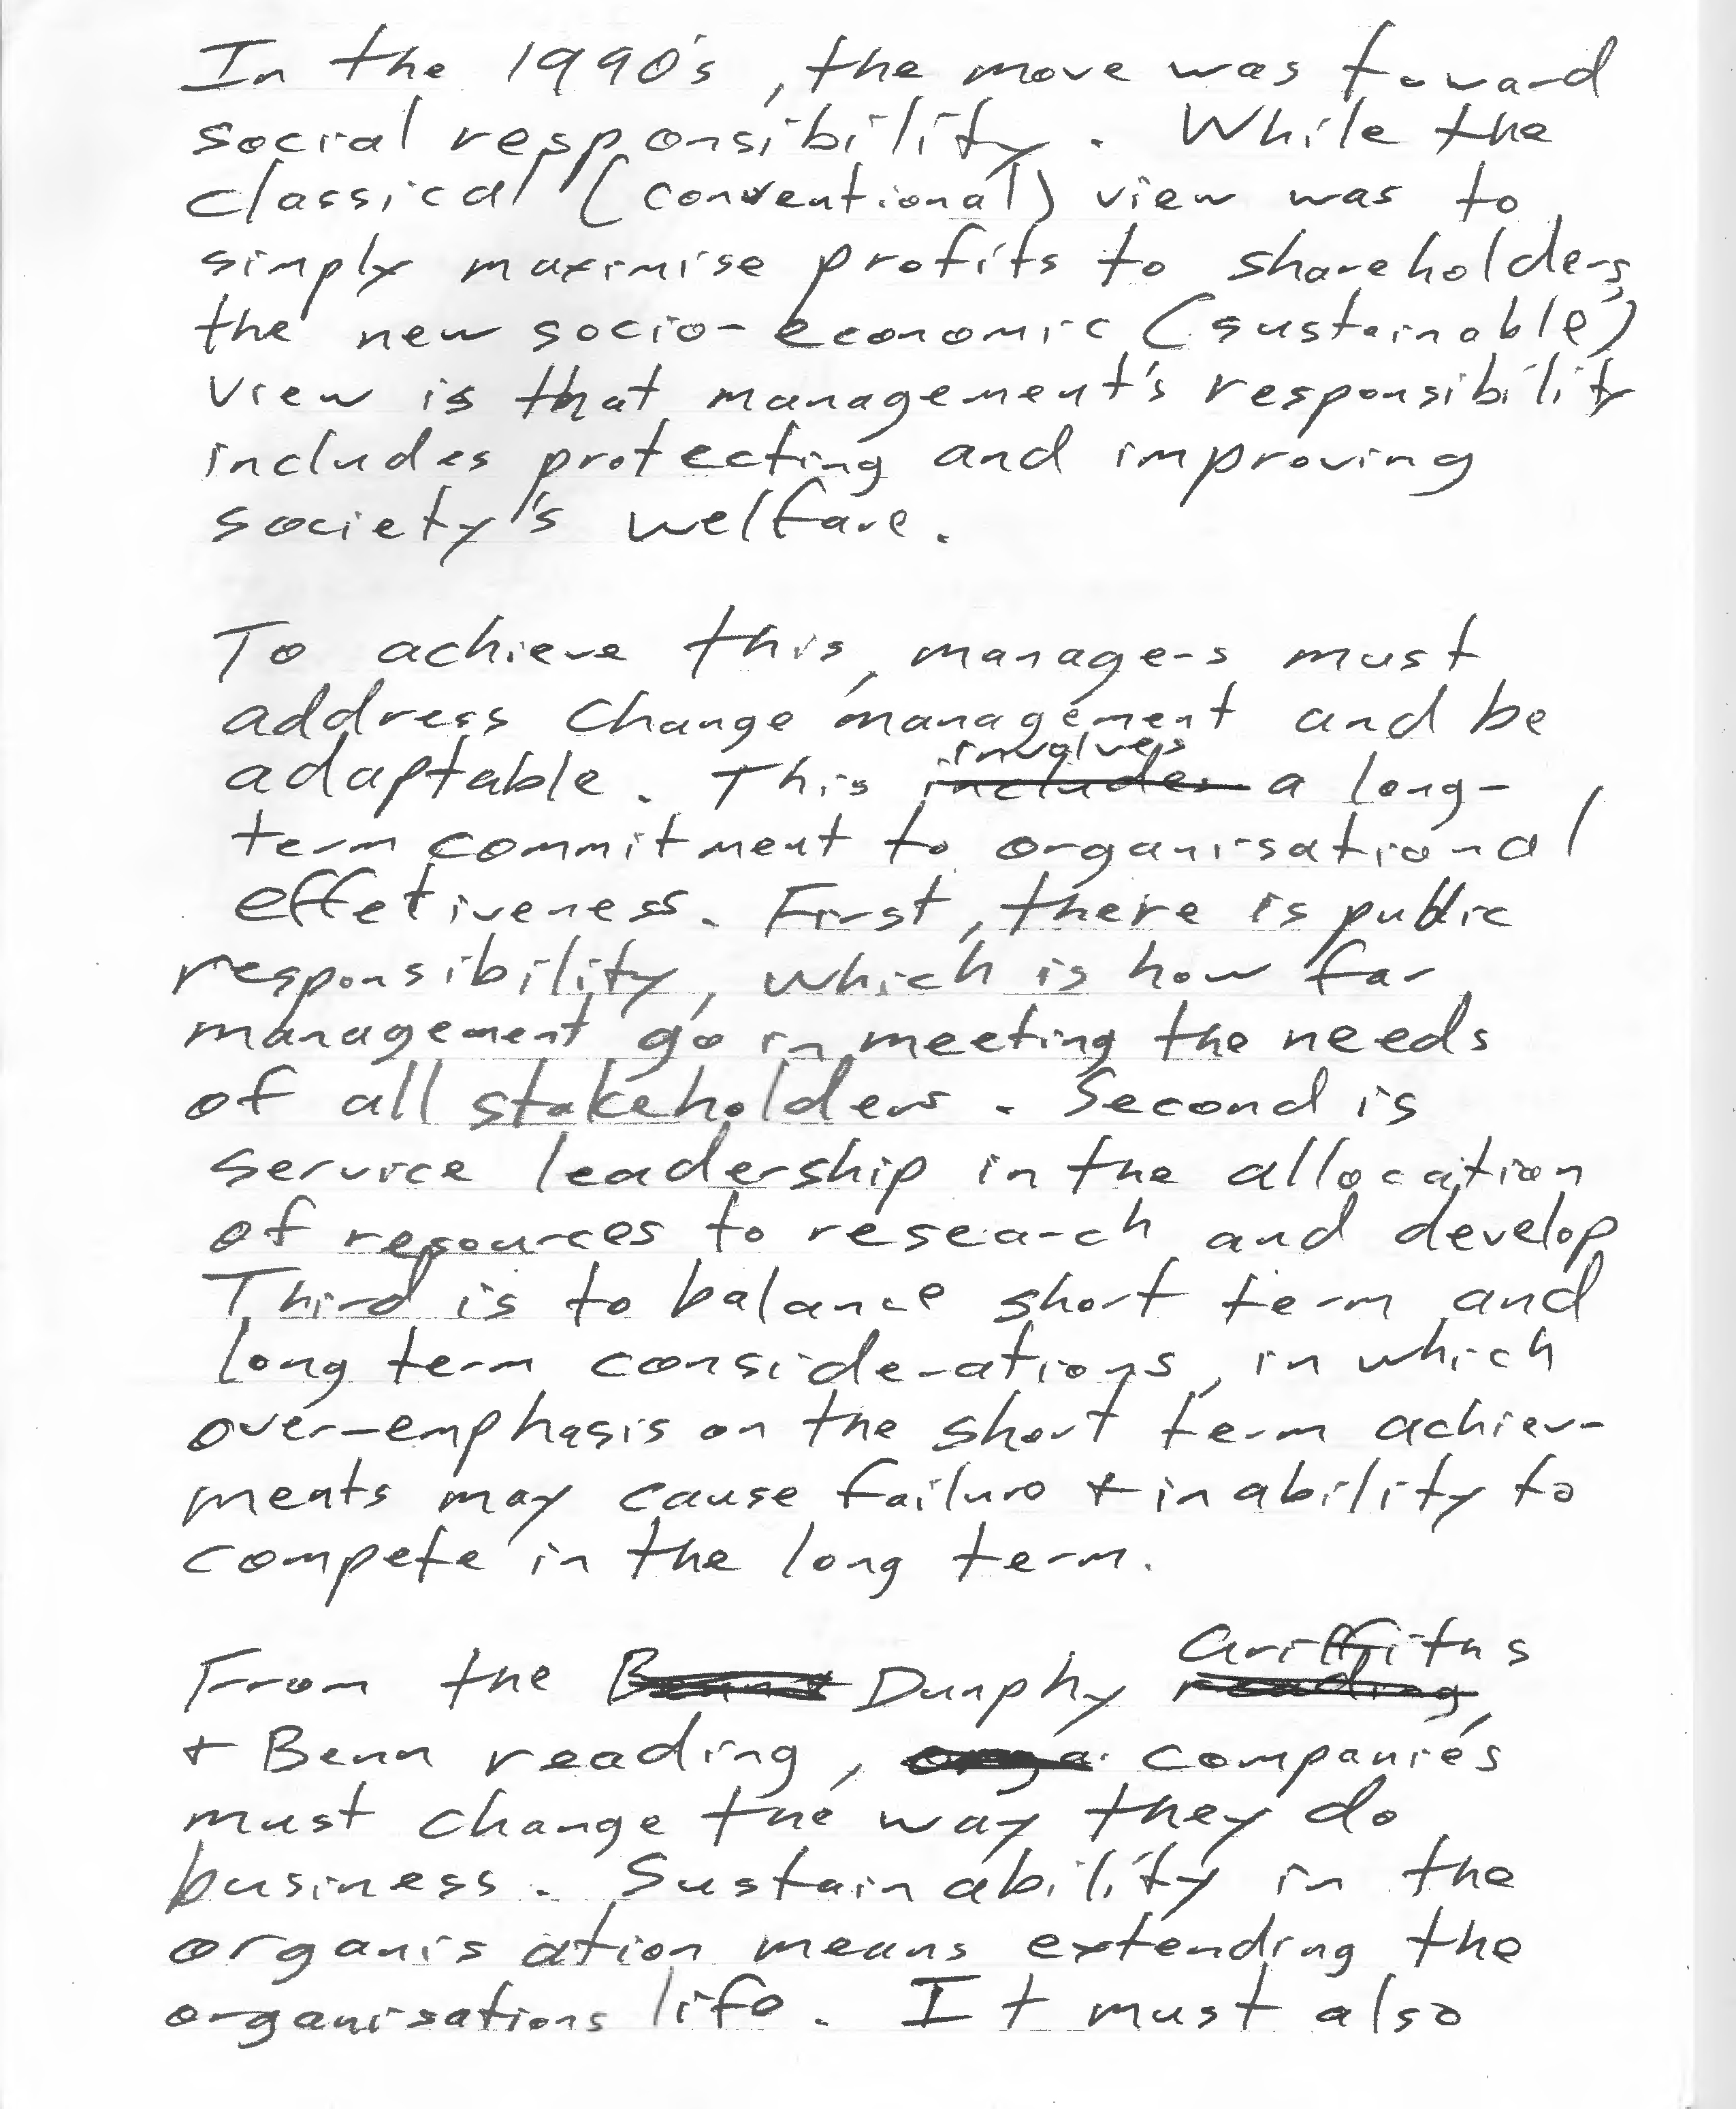 In the 1990's, the move was toward
social responsibility. While the
classical (conventional) view was to
simply maximise profits to shareholders,
the new socio-economic (sustainable)
view is that management's responsibility
includes protecting and improving
society's welfare.
To achieve this, managers must
address change management and be
adaptable. This involves includes a long-
term commitment to organisational
effetiveness. First, there is public
responsibility, which is how far
management go in meeting the needs
of all stakeholders. Second is
service leadership in the allocation
of resources to research and develop
Third is to balance short term and
long term considerations, in which
over-emphasis on the short term achiev-
ments may cause failure + inability to
compete in the long term.
From the Dunphy Griffiths reading,
+ Benn reading, orga companies
must change the way they do
business. Sustainability in the
organisation means extending the
organisations life. It must also